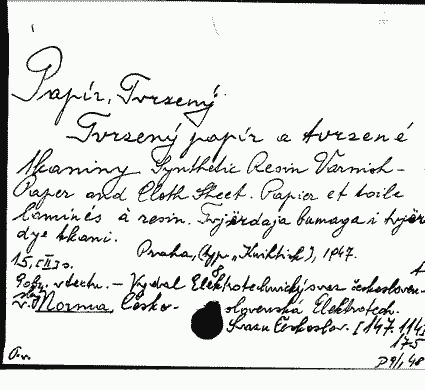 Papír, Tvrzený
Tvrzený papír a tvrzené
tkaniny Synthetic Resin Varnish-
Paper and Cloth Sheet. Papier et toile
laminés à resin. Tvjërdaja bumaga i tvjër
dye tkani.
Praha, (typ „Knihtisk"), 1947.
15, [II] s.
v textu. - Vydal Elektrotechnický svaz českosloven-
v. Norma, Česko-
slovenská Elektrotech.
svazu Českoslov. [147.114]
175
D 9/1, 48